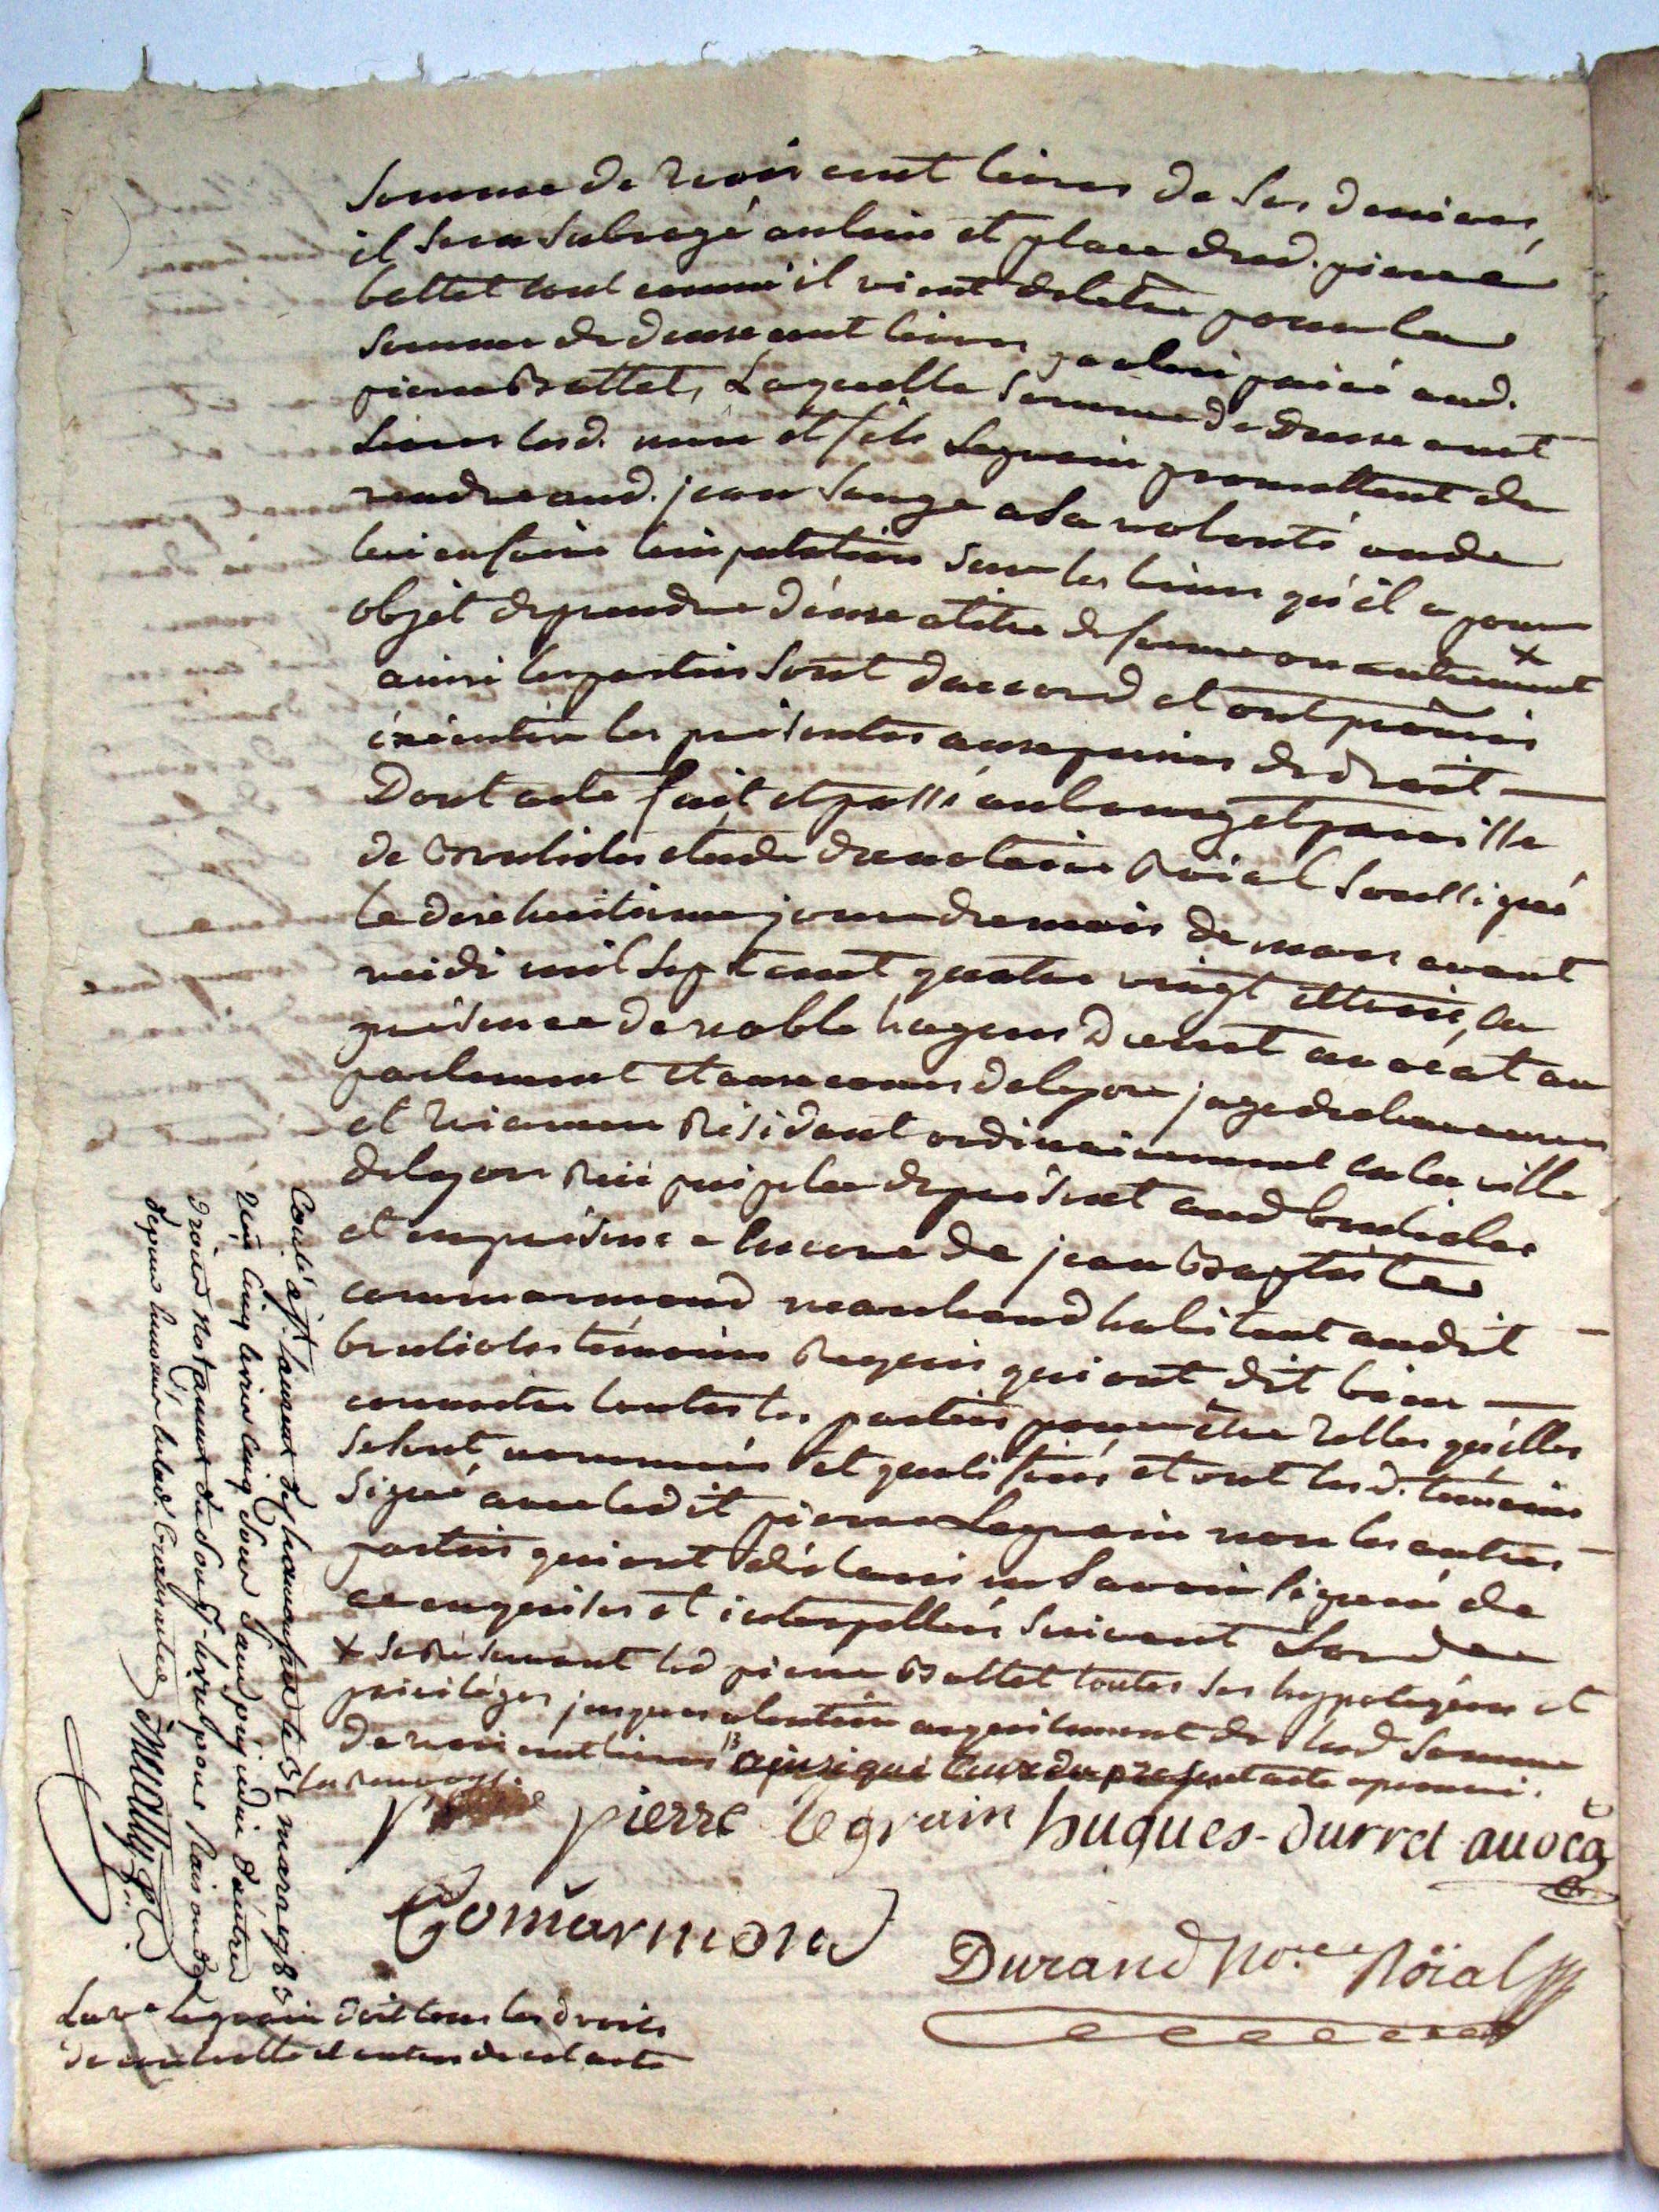 somme de trois cent livres de ses deniers,
il sera subrogé au lieu et place dud. pierre
battet tout comme il vient deletre pour la
somme de douse cent livres par lui paiée aud.
pierre Battet, Laquelle somme de Douse cent
livres lesd. mere et fils Legrain promettent de
rendre aud. jean Songe a sa volonté ou de
lui en faire limputation sur les biens qu'il a pour
objet de prendre d'eux a titre de ferme ou autrement X
ainsi les parties sont daccord et ont promis
éxécuter les présentes aux peines de droit —
Dont acte fait et passé au bourg et paroisse
de Brulioles etude du notaire Roïal soussigné
le dixhuitieme jour du mois de mars avant
midi mil sept cent quatre vingt et trois, en
présence de noble hugues Durret avocat au
parlement et aux cours de lyon juge de
et résidant ordinairement en la ville
de lyon de présent aud brulioles
et en présence encore de jean Baptiste
commarmond marchand habitant audit —
brulioles témoins Requis qui ont dit bien —
connoitre toutes les parties pour être telles qu'elles
se sont nommées et qualifiées et ont lesd. témoins
signé avec ledit pierre Legrain non les autres
parties qui ont déclaré ne savoir signer de
ce enquises et interpellées suivant Lord.ce
X se Réservant led pierre Battet toutes ses hypoteques et
privilèges jusques alentier acquitement de lad somme
de trois cent livres ainsi que ceux du présent acte aprouvé.
pierre legrain hugues-durret avocat
Comarmond
Durand No.re Roïal
Conlé a St laurent de chamousset le 31 mars 1783
Reçu cinq livres cinq sous sans préjudice d'autres
droits notamment du pour Raison de
La ve legrain doit tous les droits
de controlle et autres de cet acte